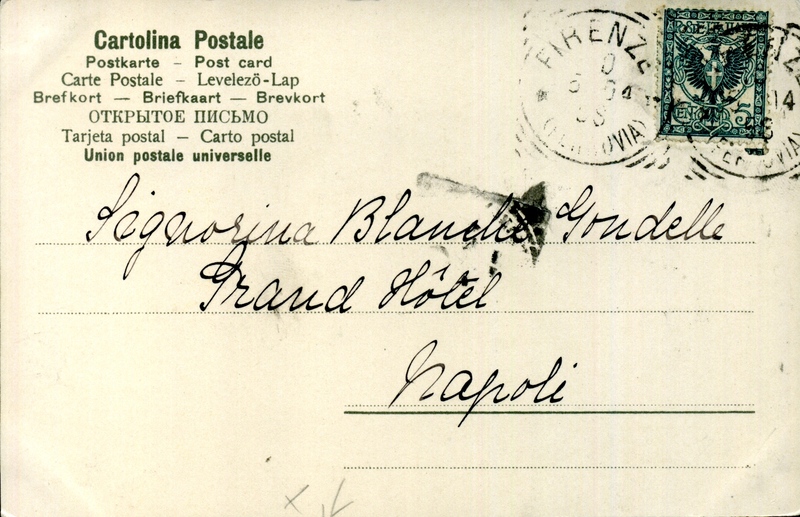 Cartolina Postale
Postkarte – Post card
Carte Postale – Levelezö-Lap
Brefkort — Briefkaart — Brevkort
ОТКРЫТОЕ ПИСЬМО
Tarjeta postal – Carto postal
Union postale universelle
FIRENZE
(FERROVIA)
5
Signorina Blanche Gondelle
Grand Hôtel
Napoli